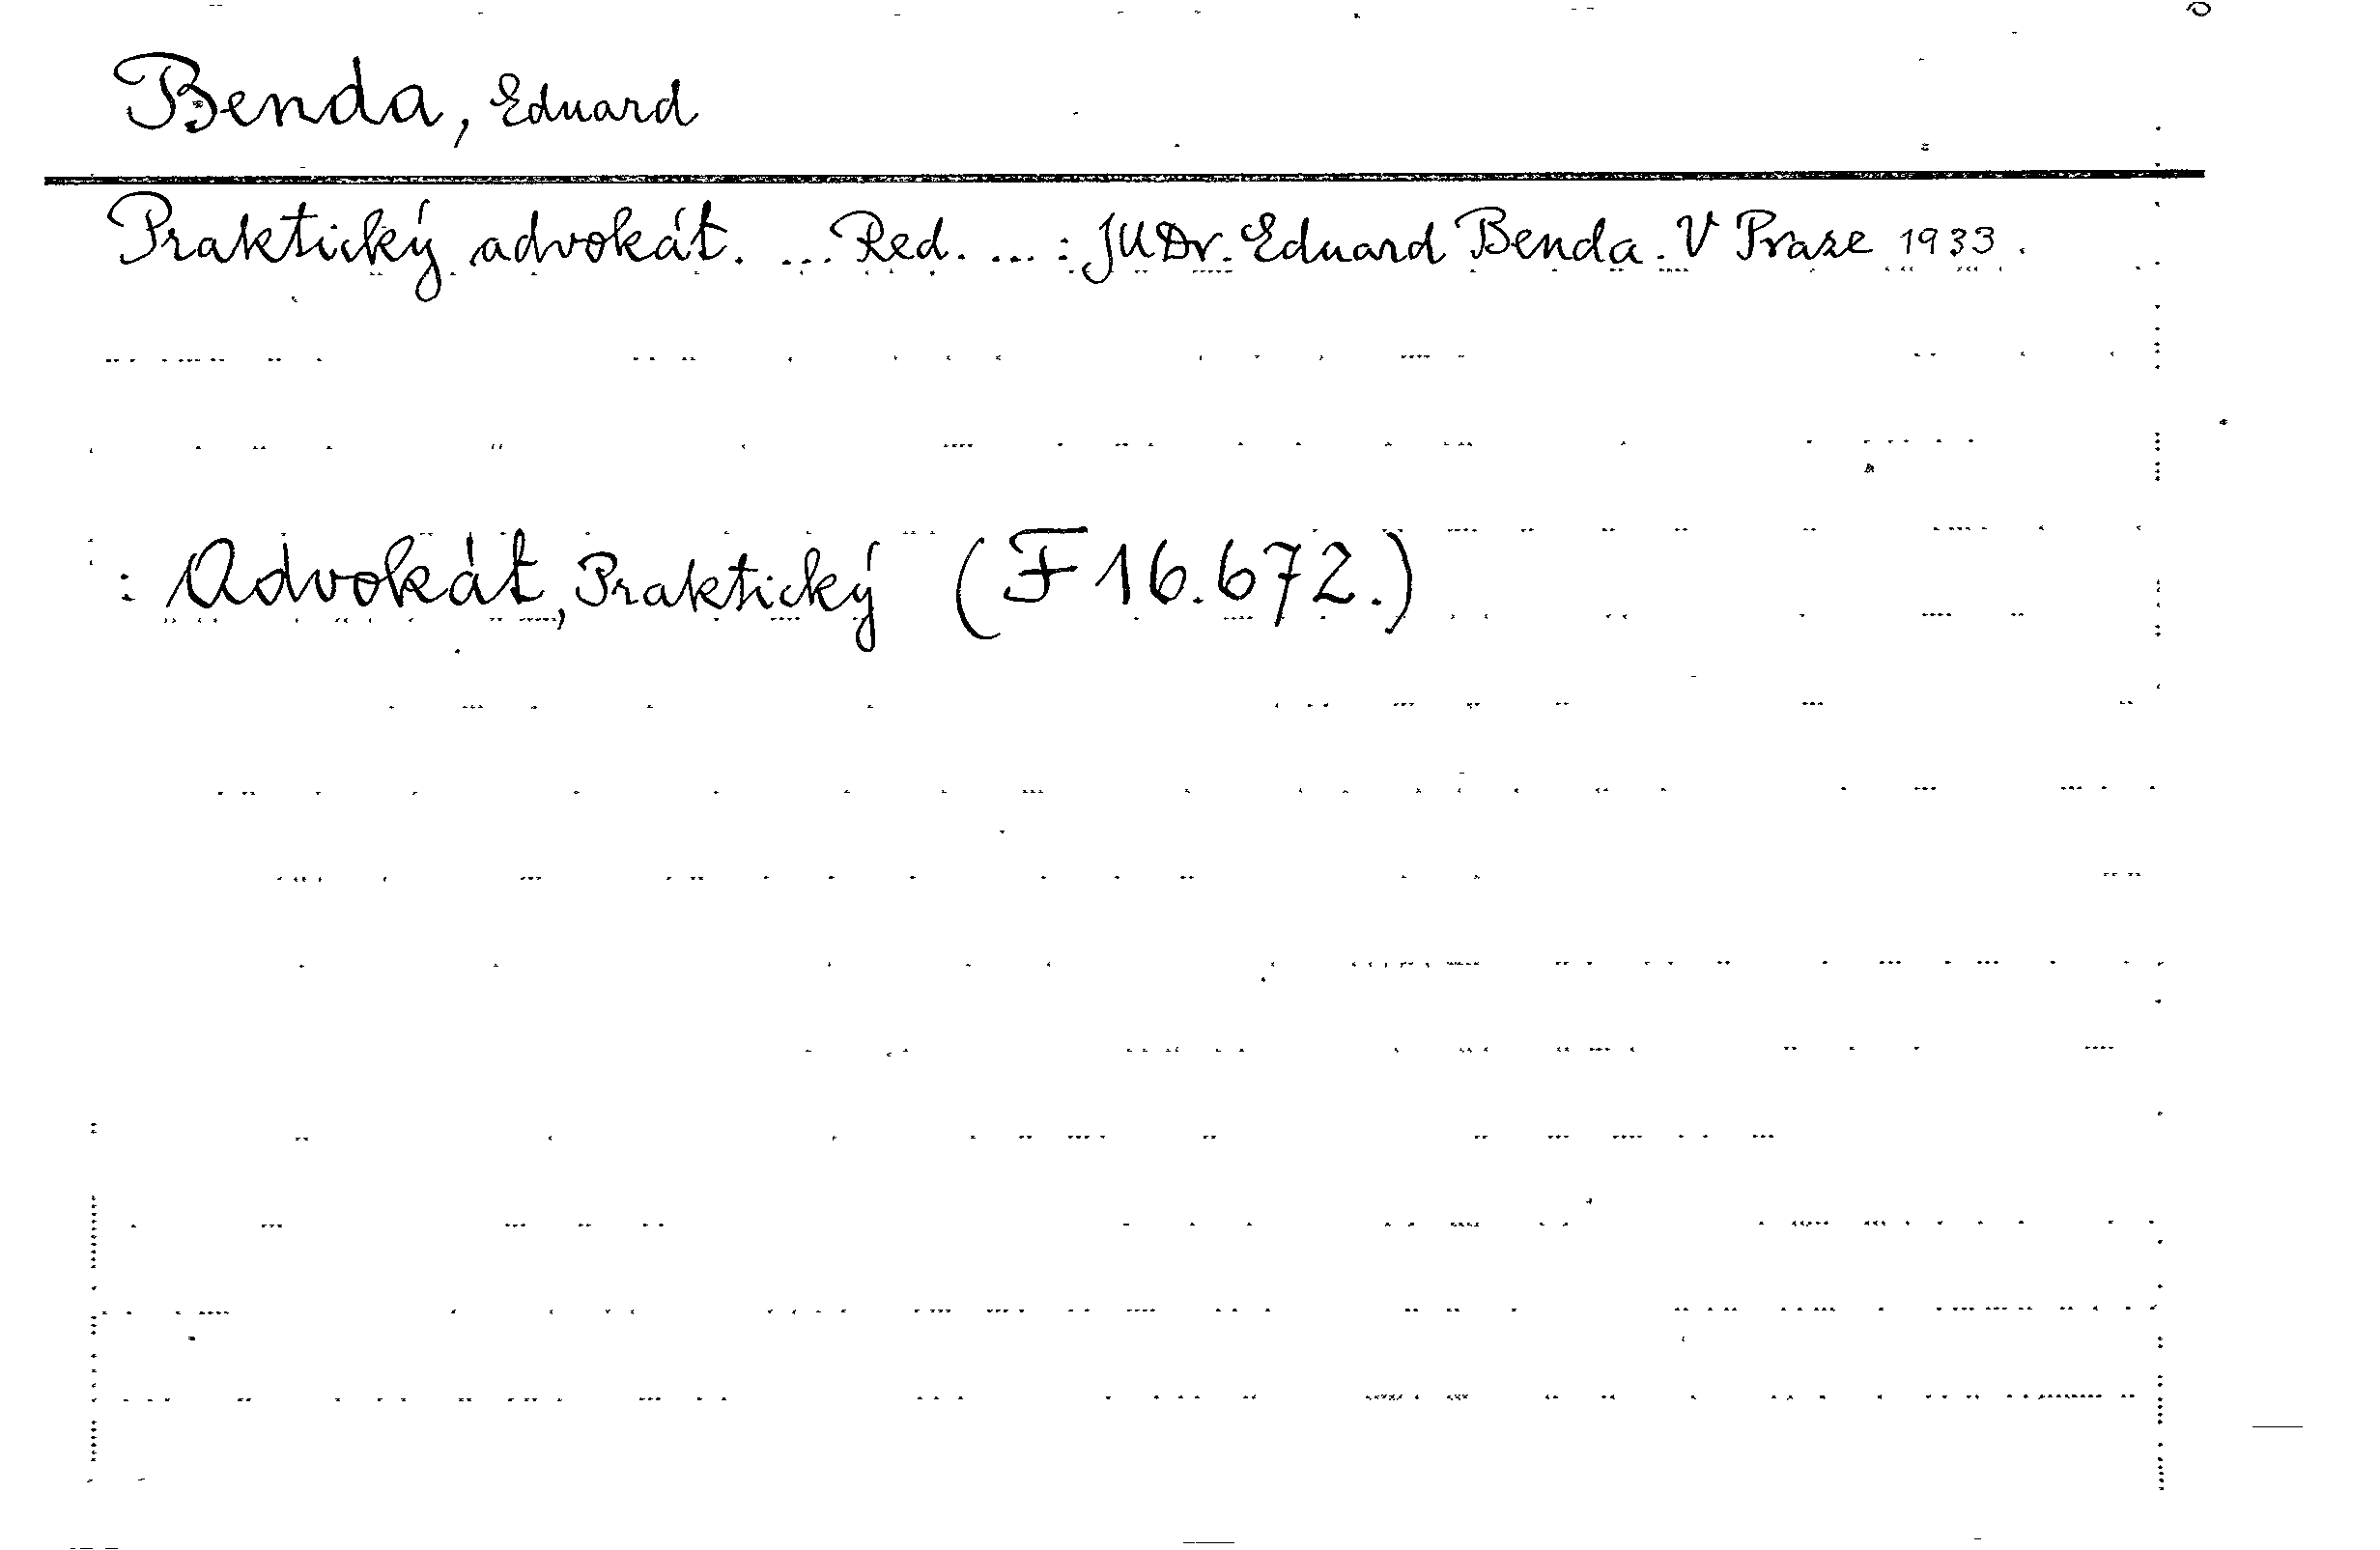 Benda, Eduard
Praktický advokát. ... Red. ... : JUDr. Eduard Benda. V Praze 1933.
: Advokát, Praktický (F 16.672.)